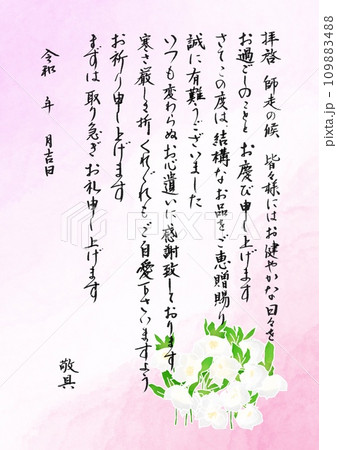 拝啓 師走の候 皆々様にはお健やかな日々を
お過ごしのことと お慶び申し上げます
さてこの度は 結構なお品をご恵贈賜り
誠に有難うございました
いつも変わらぬお心遣いに感謝致しております
寒さ厳しき折 くれぐれもご自愛下さいますよう
お祈り申し上げます
まずは 取り急ぎお礼申し上げます
敬具
令和 年 月吉日
PIXTA
pixta.jp - 109883488